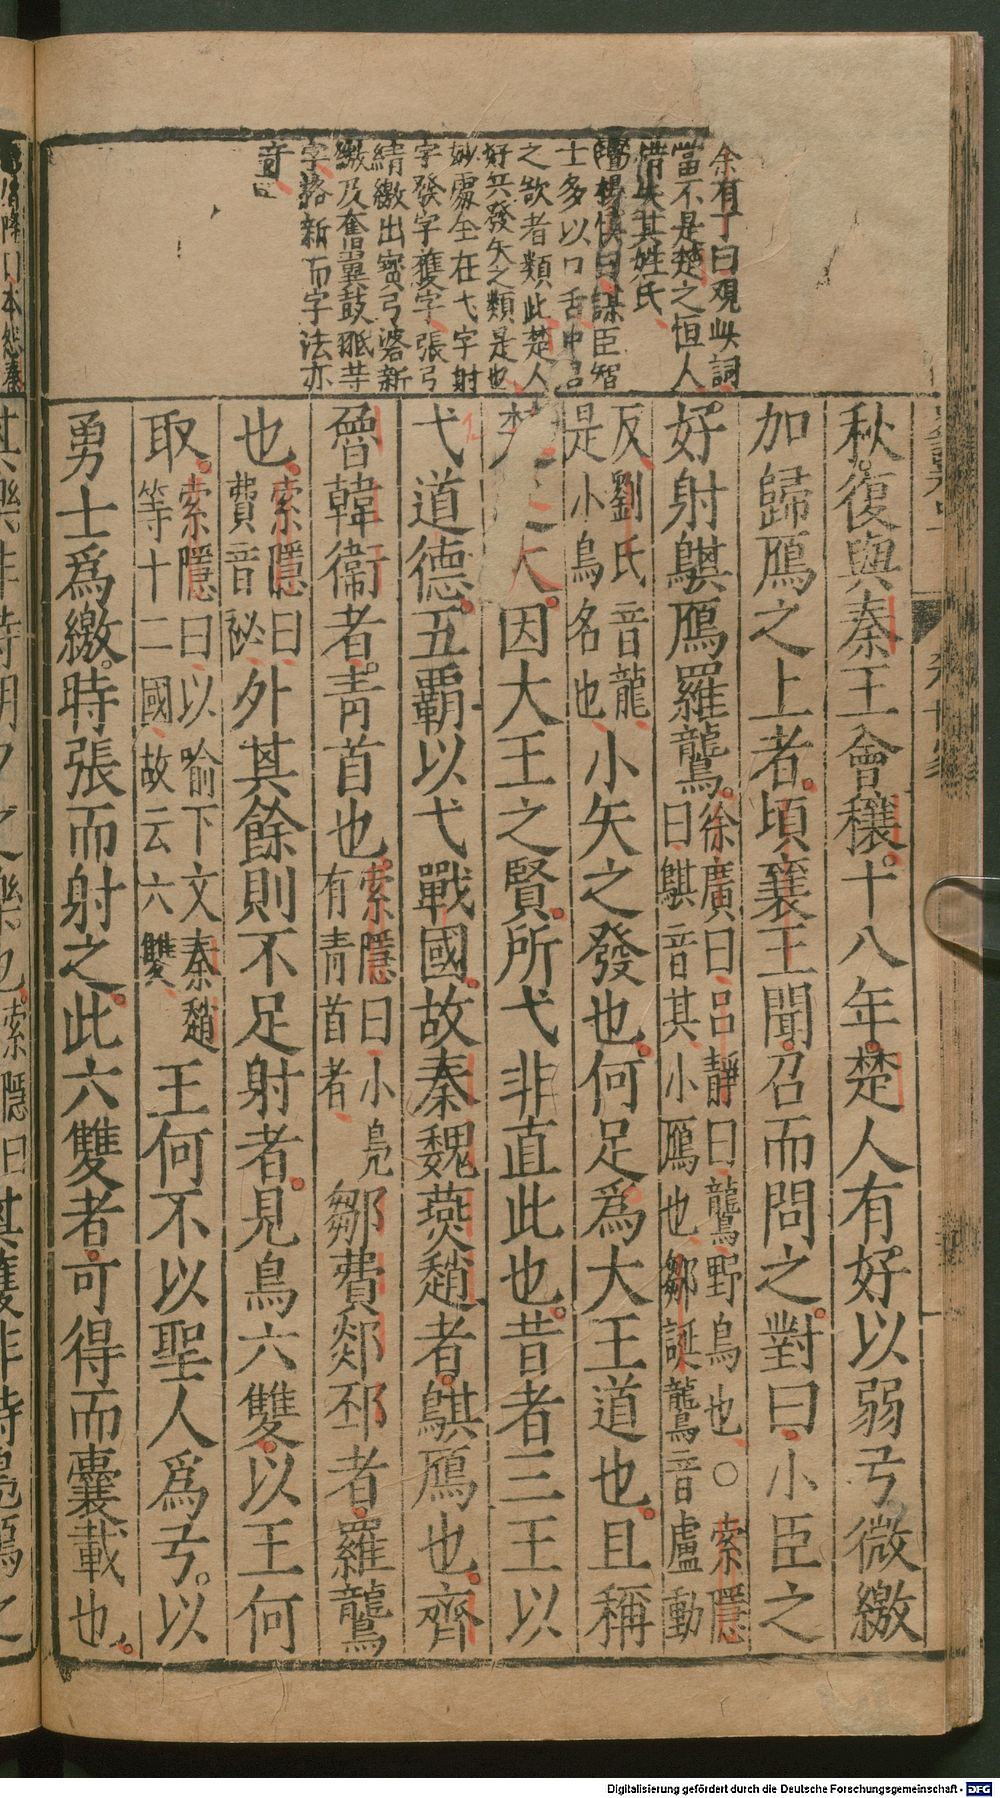 余有丁曰觀此詞
當不是楚之恒人
惜失其姓氏
楊慎曰謀臣智
士多以口舌中
之欲者類此楚人
好弋發矢之類是也
妙處全在弋字射
字發字獲字張弓
繳出寶弓碆新
繳及奮翼鼓
字格新而字法亦
奇
秋復與秦王會穰十八年楚人有好以弱弓微繳
加歸鴈之上者頃襄王聞召而問之對曰小臣之
好射鶀鴈羅鸗徐廣曰呂靜曰鸗野鳥也〇索隱曰鶀音其小鴈也鄒誕鸗音盧動
反劉氏音龍是小鳥名也小矢之發也何足爲大王道也且稱
楚之大因大王之賢所弋非直此也昔者三王以
弋道德五覇以弋戰國故秦魏燕趙者鶀鴈也齊
魯韓衞者靑首也索隱曰小鳧有靑首者鄒費郯邳者羅鸗
也索隱曰費音祕外其餘則不足射者見鳥六雙以王何
取索隱曰以喻下文秦趙等十二國故云六雙王何不以聖人爲弓以
勇士爲繳時張而射之此六雙者可得而囊載也
其樂非特朝夕之樂也索隱曰其獲非特鳧鴈之
Digitalisierung gefördert durch die Deutsche Forschungsgemeinschaft - DFG